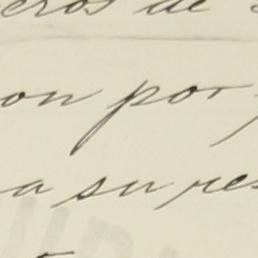 eros de
on por
a su res